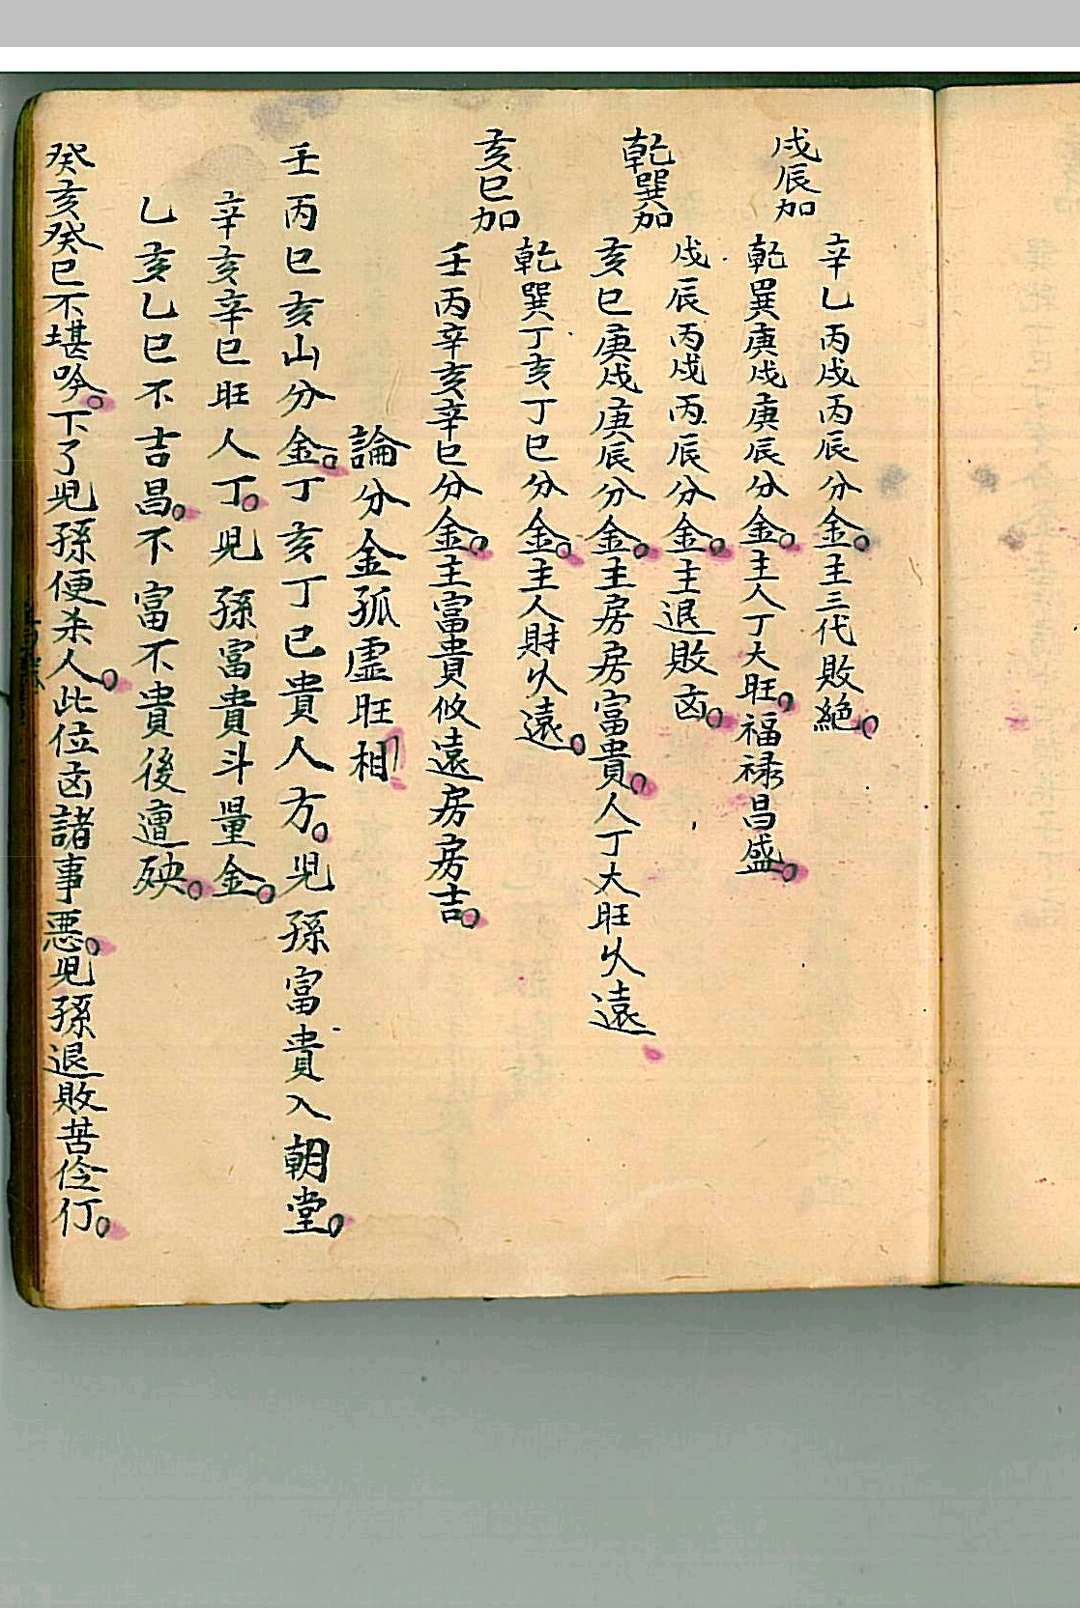 戌辰加
辛乙丙戌丙辰分金。主三代敗絕。
乾巽庚戌庚辰分金。主人丁大旺。福祿昌盛。
乾巽加
戌辰丙戌丙辰分金。主退敗凶。
亥巳庚戌庚辰分金。主房房富貴。人丁大旺久遠
亥巳加
乾巽丁亥丁巳分金。主人財久遠。
壬丙辛亥辛巳分金。主富貴攸遠房房吉。
論分金孤虛旺相
壬丙巳亥山分金。丁亥丁巳貴人方。児孫富貴入朝堂。
辛亥辛巳旺人丁。児孫富貴斗量金。
乙亥乙巳不吉昌。不富不貴後遭殃。
癸亥癸巳不堪吟。下了児孫便杀人。此位凶諸事悪。児孫退敗苦伶仃。